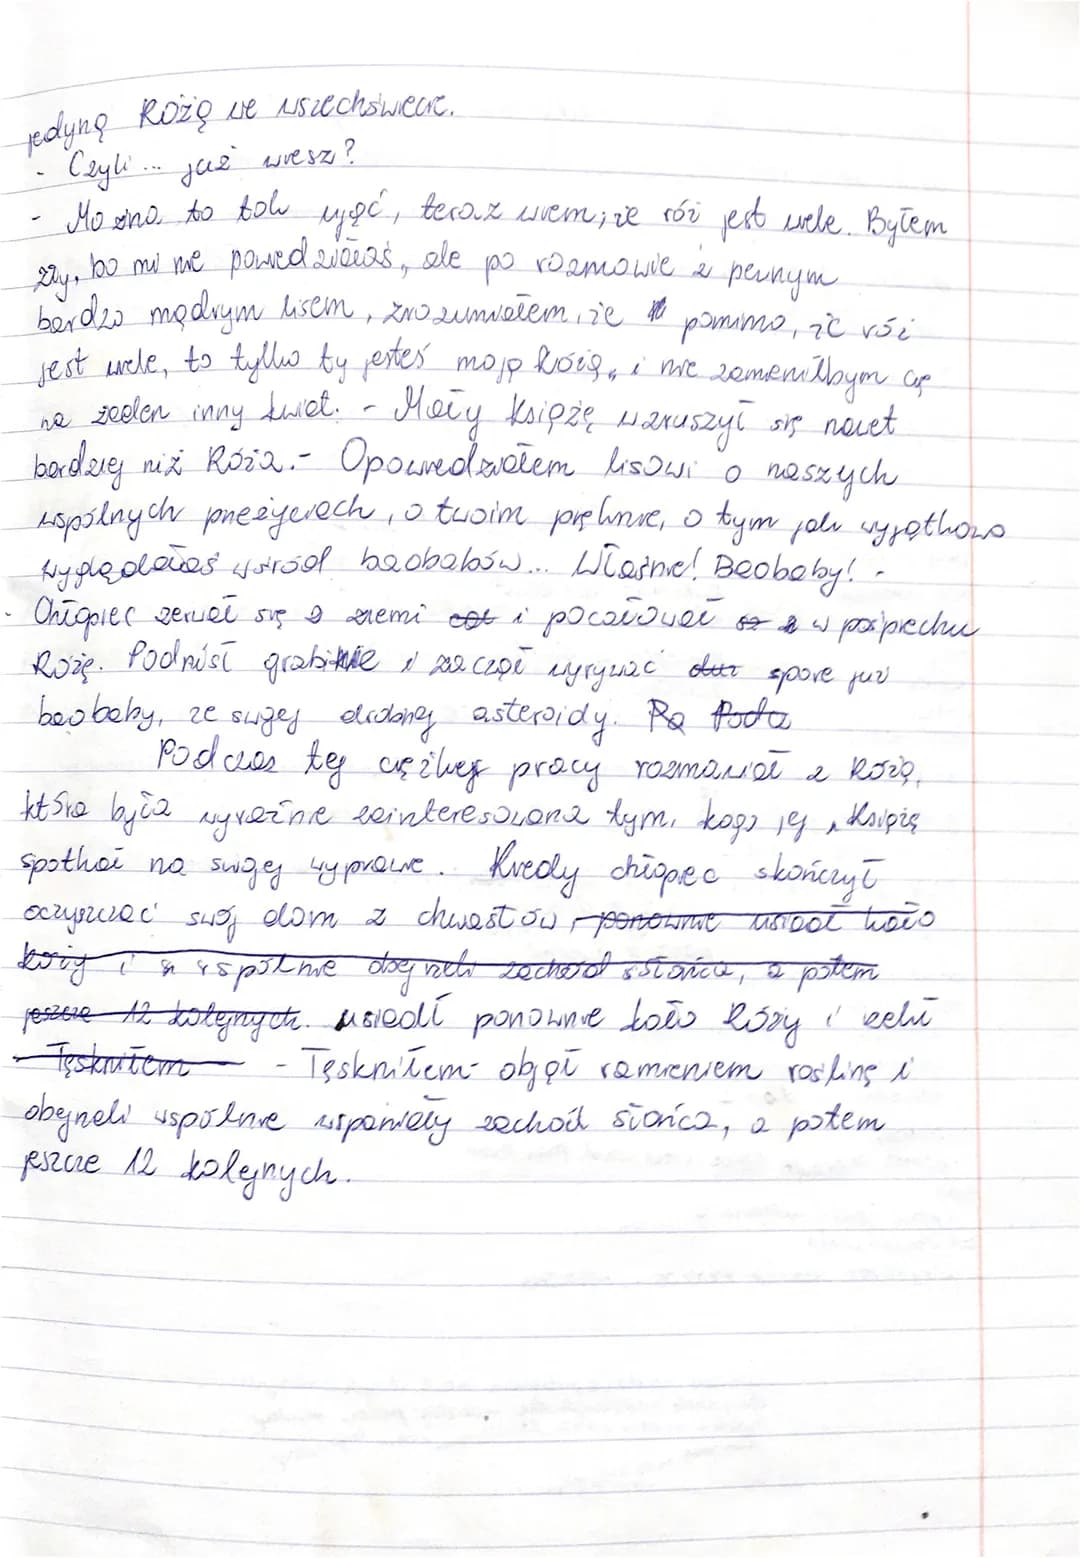 jedyną Różą we wszechświecie.
- Czyli... już wiesz?
- Można to tak ująć, teraz wiem, że róż jest wiele. Byłem
zły, bo mi nie powiedziałaś, ale po rozmowie z pewnym
bardzo mądrym lisem, zrozumiałem, że pomimo, że róż
jest wiele, to tylko ty jesteś moją Różą, i nie zamieniłbym cię
na żeden inny kwiat. - Mały Książę wzruszył się nawet
bardziej niż Róża. - Opowiedziałem lisowi o naszych
wspólnych przeżyciach, o twoim pięknie, o tym jak wyjątkowo
wyglądałaś wśród baobabów... Właśnie! Baobaby! -
Chłopiec zerwał się z ziemi i pocałował w pośpiechu
Różę. Podniósł grabie i zaczął wyrywać spore już
baobaby, ze swojej drobnej asteroidy.
Podczas tej ciężkiej pracy rozmawiał z Różą,
która była wyraźnie zainteresowana tym, kogo jej Książę
spotkał na swojej wyprawie. Kiedy chłopiec skończył
oczyszczać swój dom z chwastów, ponownie usiadł koło
Róży i wspólnie obejrzeli zachód słońca, a potem
jeszcze 12 kolejnych. usiadł ponownie koło Róży i rzekł
- Tęskniłem - Tęskniłem - objął ramieniem roślinę i
obejrzeli wspólnie wspaniały zachód słońca, a potem
jeszcze 12 kolejnych.